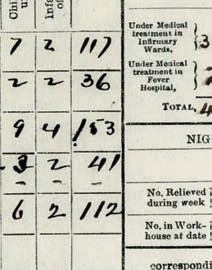 Chi Infa
of
7 2 117
2 2 36
9 4 153
3 2 41
- - -
6 2 112
Under Medical
treatment in
Infirmary
Wards,
3
Under Medical
treatment in
Fever
Hospital,
TOTAL, 4
NIG
No. Relieved
during week
No. in Work-
house at date
correspondi